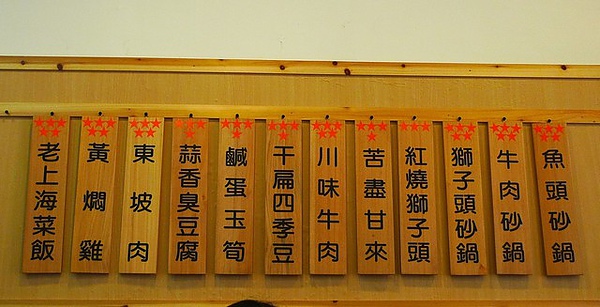 老上海菜飯
黃燜雞
東坡肉
蒜香臭豆腐
鹹蛋玉筍
干扁四季豆
川味牛肉
苦盡甘來
紅燒獅子頭
獅子頭砂鍋
牛肉砂鍋
魚頭砂鍋